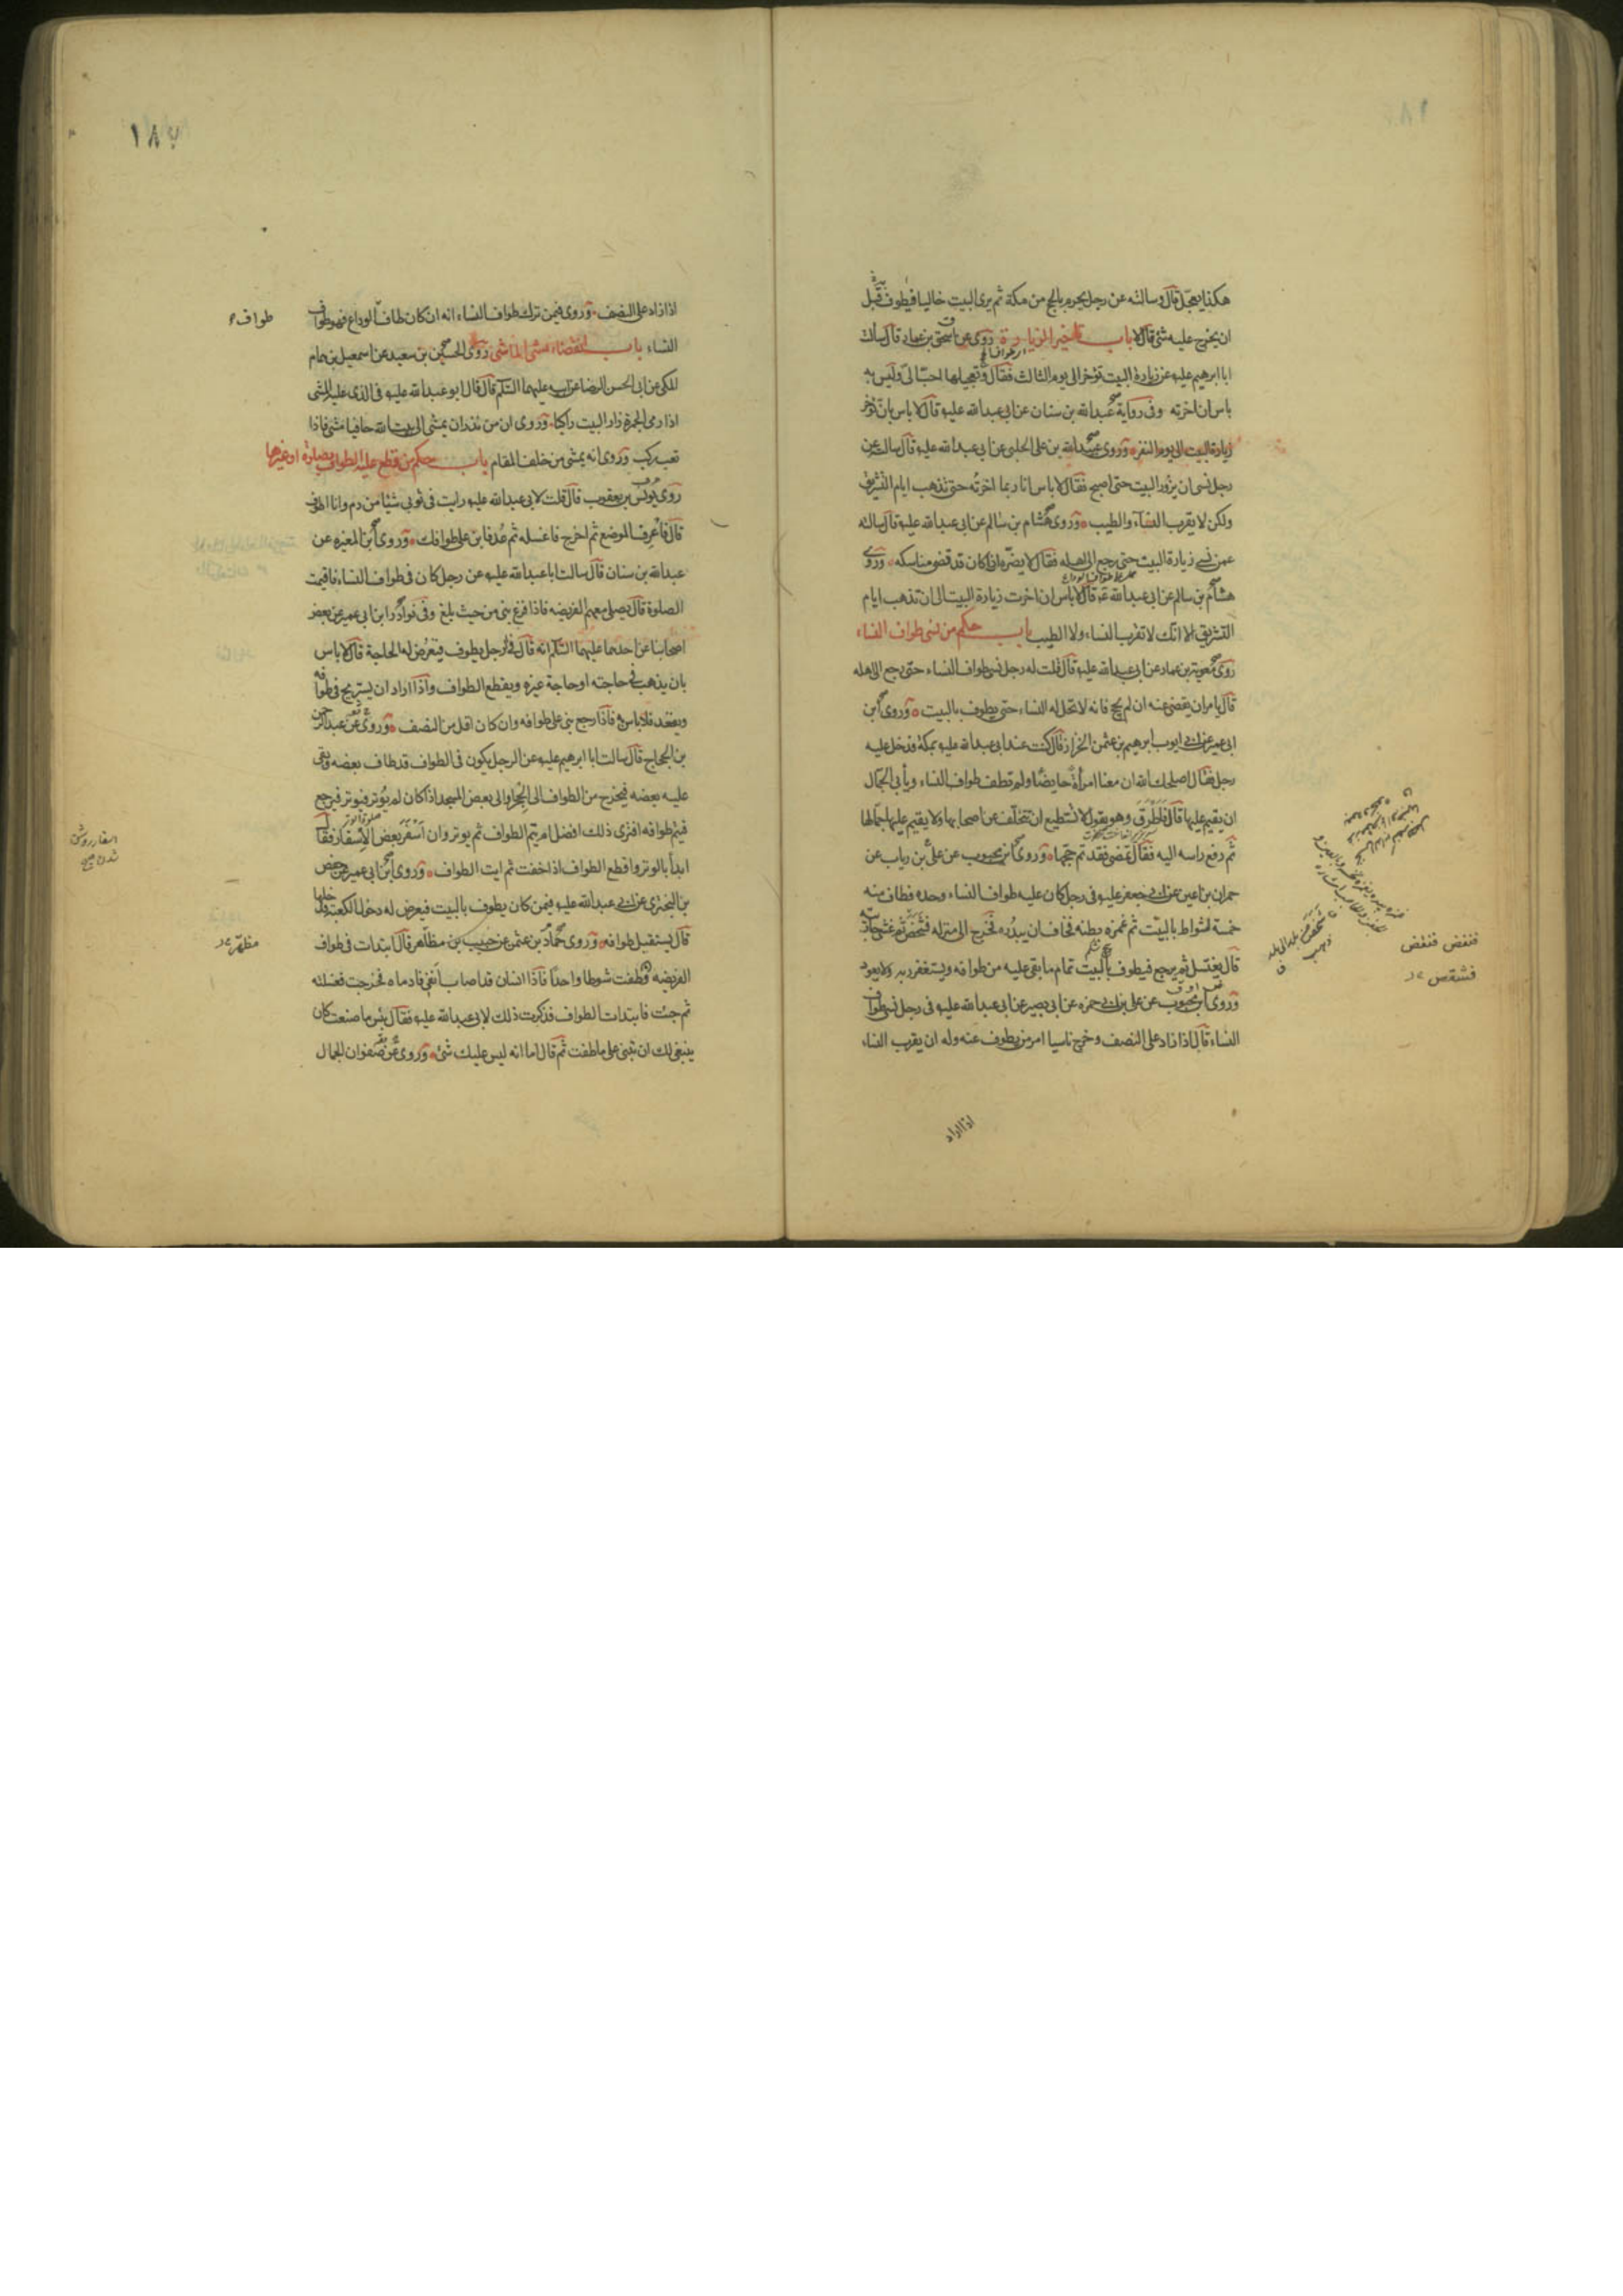 هكذا يعجل قال وسالته عن رجل يحرم بالحج من مكة ثم يرى البيت خاليا فيطوف قبل
ان يخرج عليه شئ قال لا باب تاخير الزيارة روى عن اسحق بن عمار قال سالت
ابا ابرهيم عليه عن زيارة البيت تؤخر الى يوم الثالث فقال تعجيلها احب الى وليس به
باس ان اخرته وفى رواية عبدالله بن سنان عن ابى عبدالله عليه قال لا باس بان تؤخر
زيارة البيت الى يوم النفر وروى عبيدالله بن على الحلبى عن ابى عبدالله عليه قال سالته عن
رجل نسى ان يزور البيت حتى اصبح فقال لا باس انا ربما اخرته حتى تذهب ايام التشريق
ولكن لا يقرب النساء والطيب وروى هشام بن سالم عن ابى عبدالله عليه قال سالته
عمن نسى زيارة البيت حتى رجع الى اهله فقال لا يضره اذا كان قد قضى مناسكه وروى
هشام بن سالم عن ابى عبدالله قال لا باس ان اخرت زيارة البيت الى ان تذهب ايام
التشريق الا انك لا تقرب النساء ولا الطيب باب حكم من نسى طواف النساء
روى معوية بن عمار عن ابى عبدالله عليه قال قلت له رجل نسى طواف النساء حتى رجع الى اهله
قال يامر ان يقضى عنه ان لم يحج فانه لا تحل له النساء حتى يطوف بالبيت وروى ابن
ابى عمير عن ابى ايوب ابرهيم بن عثمن الخزاز قال كنت عند ابى عبدالله عليه بمكة فدخل عليه
رجل فقال اصلحك الله ان معنا امرأة حايضا ولم تطف طواف النساء ويأبى الجمال
ان يقيم عليها قال فاطرق وهو يقول لا تستطيع ان تتخلف عن اصحابها ولا يقيم عليها جمالها
ثم رفع راسه اليه فقال تمضى فقد تم حجها وروى ابن محبوب عن على بن رياب عن
حمران بن اعين عن ابى جعفر عليه فى رجل كان عليه طواف النساء وحده فطاف منه
خمسة اشواط بالبيت ثم غمزه بطنه فخاف ان يبدره فخرج الى منزله فشخص ثم غشى جاريته
قال يغتسل ثم يرجع فيطوف بالبيت تمام ما بقى عليه من طوافه ويستغفر ربه ولا يعود
وروى ابن محبوب عن على بن ابى حمزه عن ابى بصير عن ابى عبدالله عليه فى رجل نسى طواف
النساء قال اذا زاد على النصف وخرج ناسيا امر من يطوف عنه وله ان يقرب النساء
اذا زاد
فنفض فنفض
فشقص
١٨٧
اذا زاد على النصف وروى فيمن ترك طواف النساء انه ان كان طاف الوداع فهو طواف
طواف
النساء باب انقضاء مشى الماشى روى الحسين بن سعيد عن اسمعيل بن همام
المكى عن ابى الحسن الرضا عن ابيه عليهما السلم قال قال ابو عبدالله عليه فى الذى عليه المشى
اذا رمى الجمرة زار البيت راكبا وروى ان من نذر ان يمشى الى بيت الله حافيا مشى فاذا
تعب ركب وروى انه يمشى من خلف المقام باب حكم من قطع عليه الطواف بصلوة او غيرها
روى يونس بن يعقوب قال قلت لابى عبدالله عليه رايت فى ثوبى شيئا من دم وانا اطوف
قال فاعرف الموضع ثم اخرج فاغسله ثم عد فابن على طوافك وروى ابن المغيره عن
عبدالله بن سنان قال سالت ابا عبدالله عليه عن رجل كان فى طواف النساء فاقيمت
الصلوة قال يصلى معهم الفريضه فاذا فرغ بنى من حيث بلغ وفى نوادر ابن ابى عمير عن بعض
اصحابنا عن احدهما عليهما السلم انه قال فى الرجل يطوف فيعرض له الحاجة قال لا باس
بان يذهب فى حاجته او حاجة غيره ويقطع الطواف واذا اراد ان يستريح فى طوافه
ويقعد فلا باس به فاذا رجع بنى على طوافه وان كان اقل من النصف وروى عن عبدالرحمن
بن الحجاج قال سالت ابا ابرهيم عليه عن الرجل يكون فى الطواف قد طاف بعضه وبقى
عليه بعضه فيخرج من الطواف الى الحجر او الى بعض المسجد اذا كان لم يوتر فيوتر فيرجع
فيتم طوافه افترى ذلك افضل ام يتم الطواف ثم يوتر وان اسفر بعض الاسفار فقال
ابدأ بالوتر واقطع الطواف اذا خفت ثم ايت الطواف وروى ابن ابى عمير عن حفص
بن البخترى عن ابى عبدالله عليه فيمن كان يطوف بالبيت فيعرض له دخول الكعبة فدخلها
قال يستقبل طوافه وروى حماد بن عثمن عن حبيب بن مظاهر قال ابتدات فى طواف
الفريضه فطفت شوطا واحدا فاذا انسان قد اصاب انفى فادماه فخرجت فغسلته
ثم جئت فابتدات الطواف فذكرت ذلك لابى عبدالله عليه فقال بئس ما صنعت كان
ينبغى لك ان تبنى على ما طفت ثم قال اما انه ليس عليك شئ وروى عن صفوان الجمال
مظهر